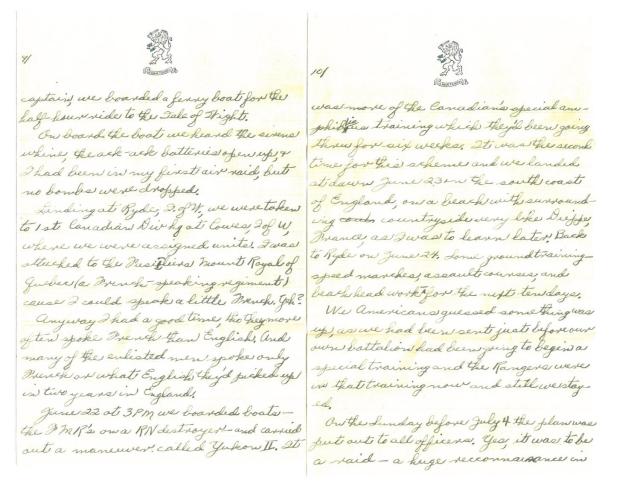 9/
captain, we boarded a ferry boat for the
half hour ride to the Isle of Wight.
On board the boat we heard the sirens
whine, the ack-ack batteries open up, &
I had been in my first air raid, but
no bombs were dropped.
Landing at Ryde, I. of W., we were taken
to 1st Canadian Div hq at Cowes, I of W,
where we were assigned units. I was
attached to the Fusiliers Mount Royal of
Quebec (a French-speaking regiment)
cause I could speak a little French. Yeh?
Anyway I had a good time tho they more
often spoke French than English. And
many of the enlisted men spoke only
French or what English they'd picked up
in two years in England.
June 22 at 3 PM we boarded boats—
the FMR's on a RN destroyer—and carried
out a maneuver called Yukon II. It
10/
was more of the Canadian's special am-
phibious training which they'd been going
thru for six weeks. It was the second
time for this scheme and we landed
at dawn June 23 on the south coast
of England, on a beach with surround-
ing countryside very like Dieppe,
France, as I was to learn later. Back
to Ryde on June 24. Some ground training—
speed marches, assault courses, and
beach head work for the next ten days.
We Americans guessed something was
up, as we had been sent just before our
own battalion had been going to begin a
special training and the Rangers were
in that training now and still we stay-
ed.
On the Sunday before July 4 the plan was
put out to all officers. Yes, it was to be
a raid — a huge reconnaissance in